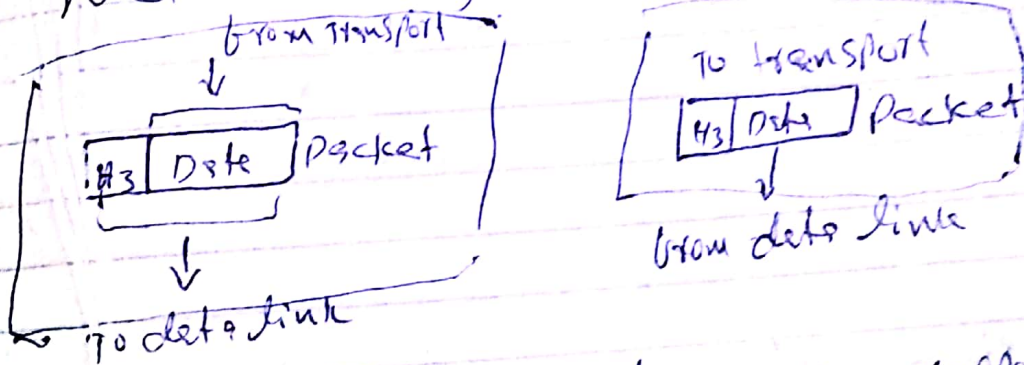 from transport
H3 Data Packet
To data link
To transport
H3 Data Packet
from data link